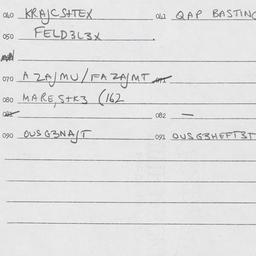 040 KRAJCSHTEX 041 QAP BASTINC
050 FELD3L3X
070 AZAJMU/FAZAJMT
080 MARE,S+K3 (162
082 —
090 OUSG3NAJT 091 OUSG3HEFT3T